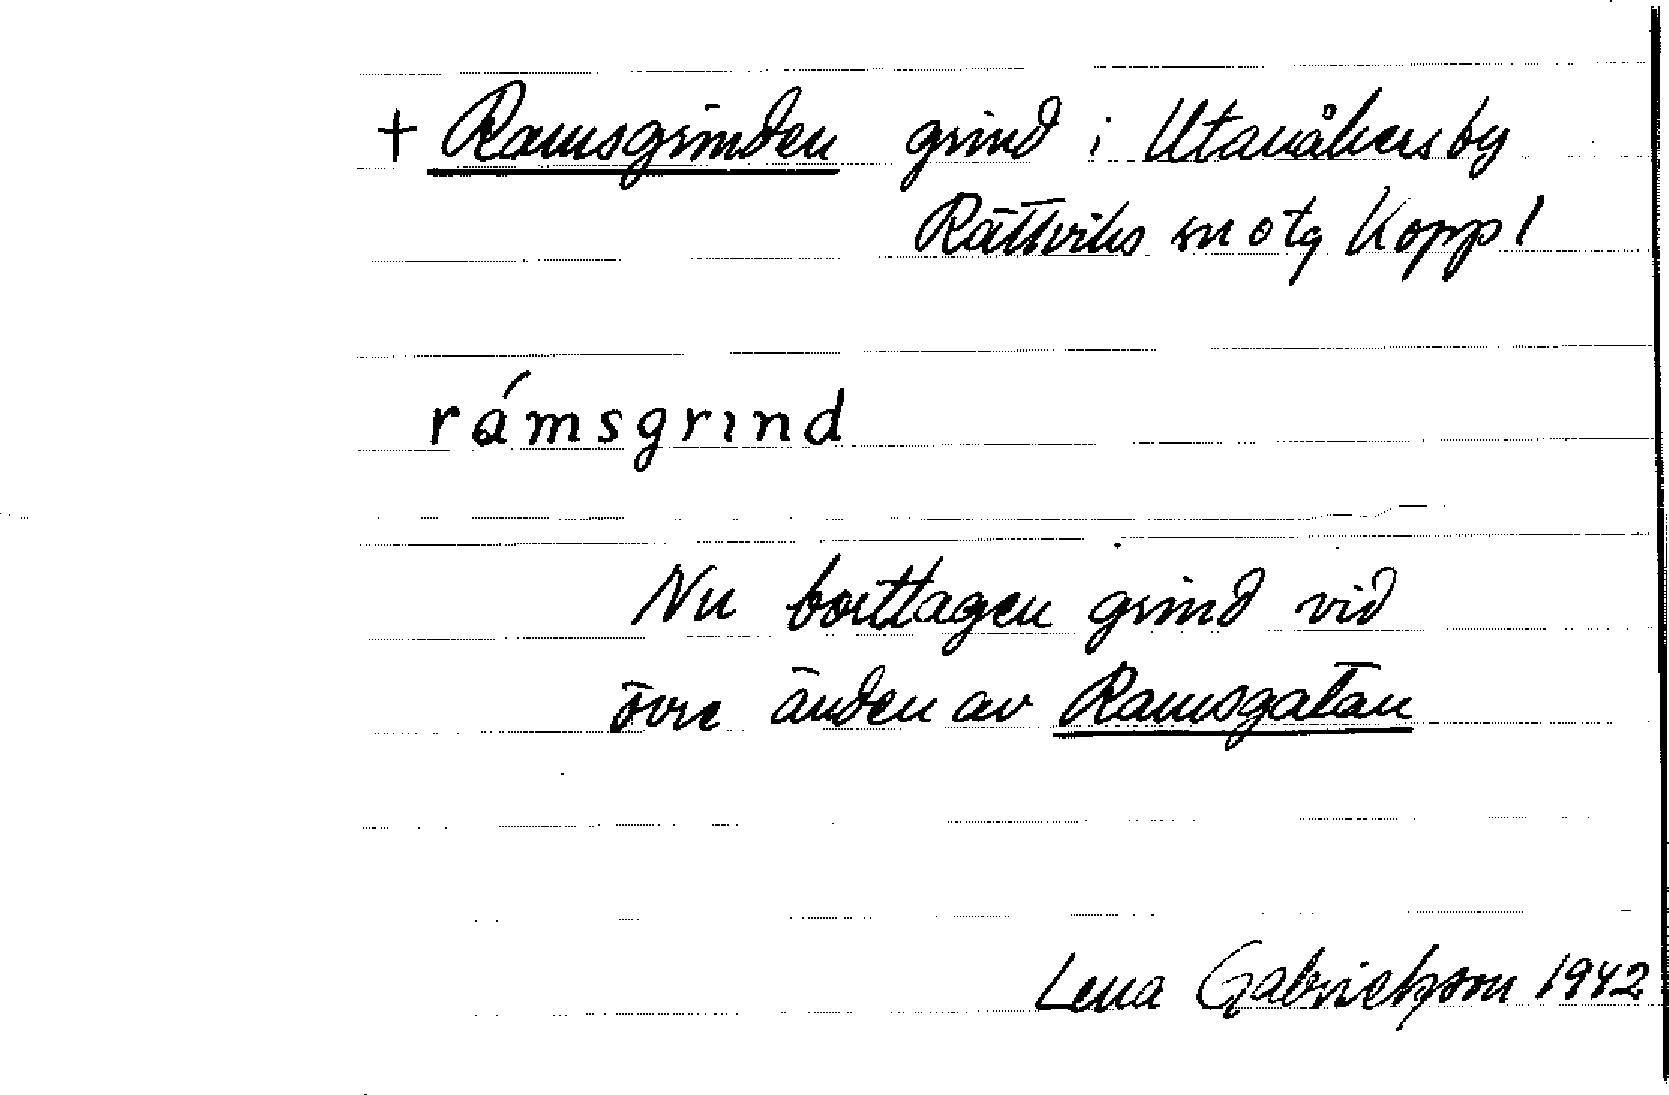 + Ramsgrinden grind i Utanåkersby
Rättviks sn o tg Koppl
rámsgrınd
Nu borttagen grind vid
övre änden av Ramsgatan
Lena Gabrielsson 1942